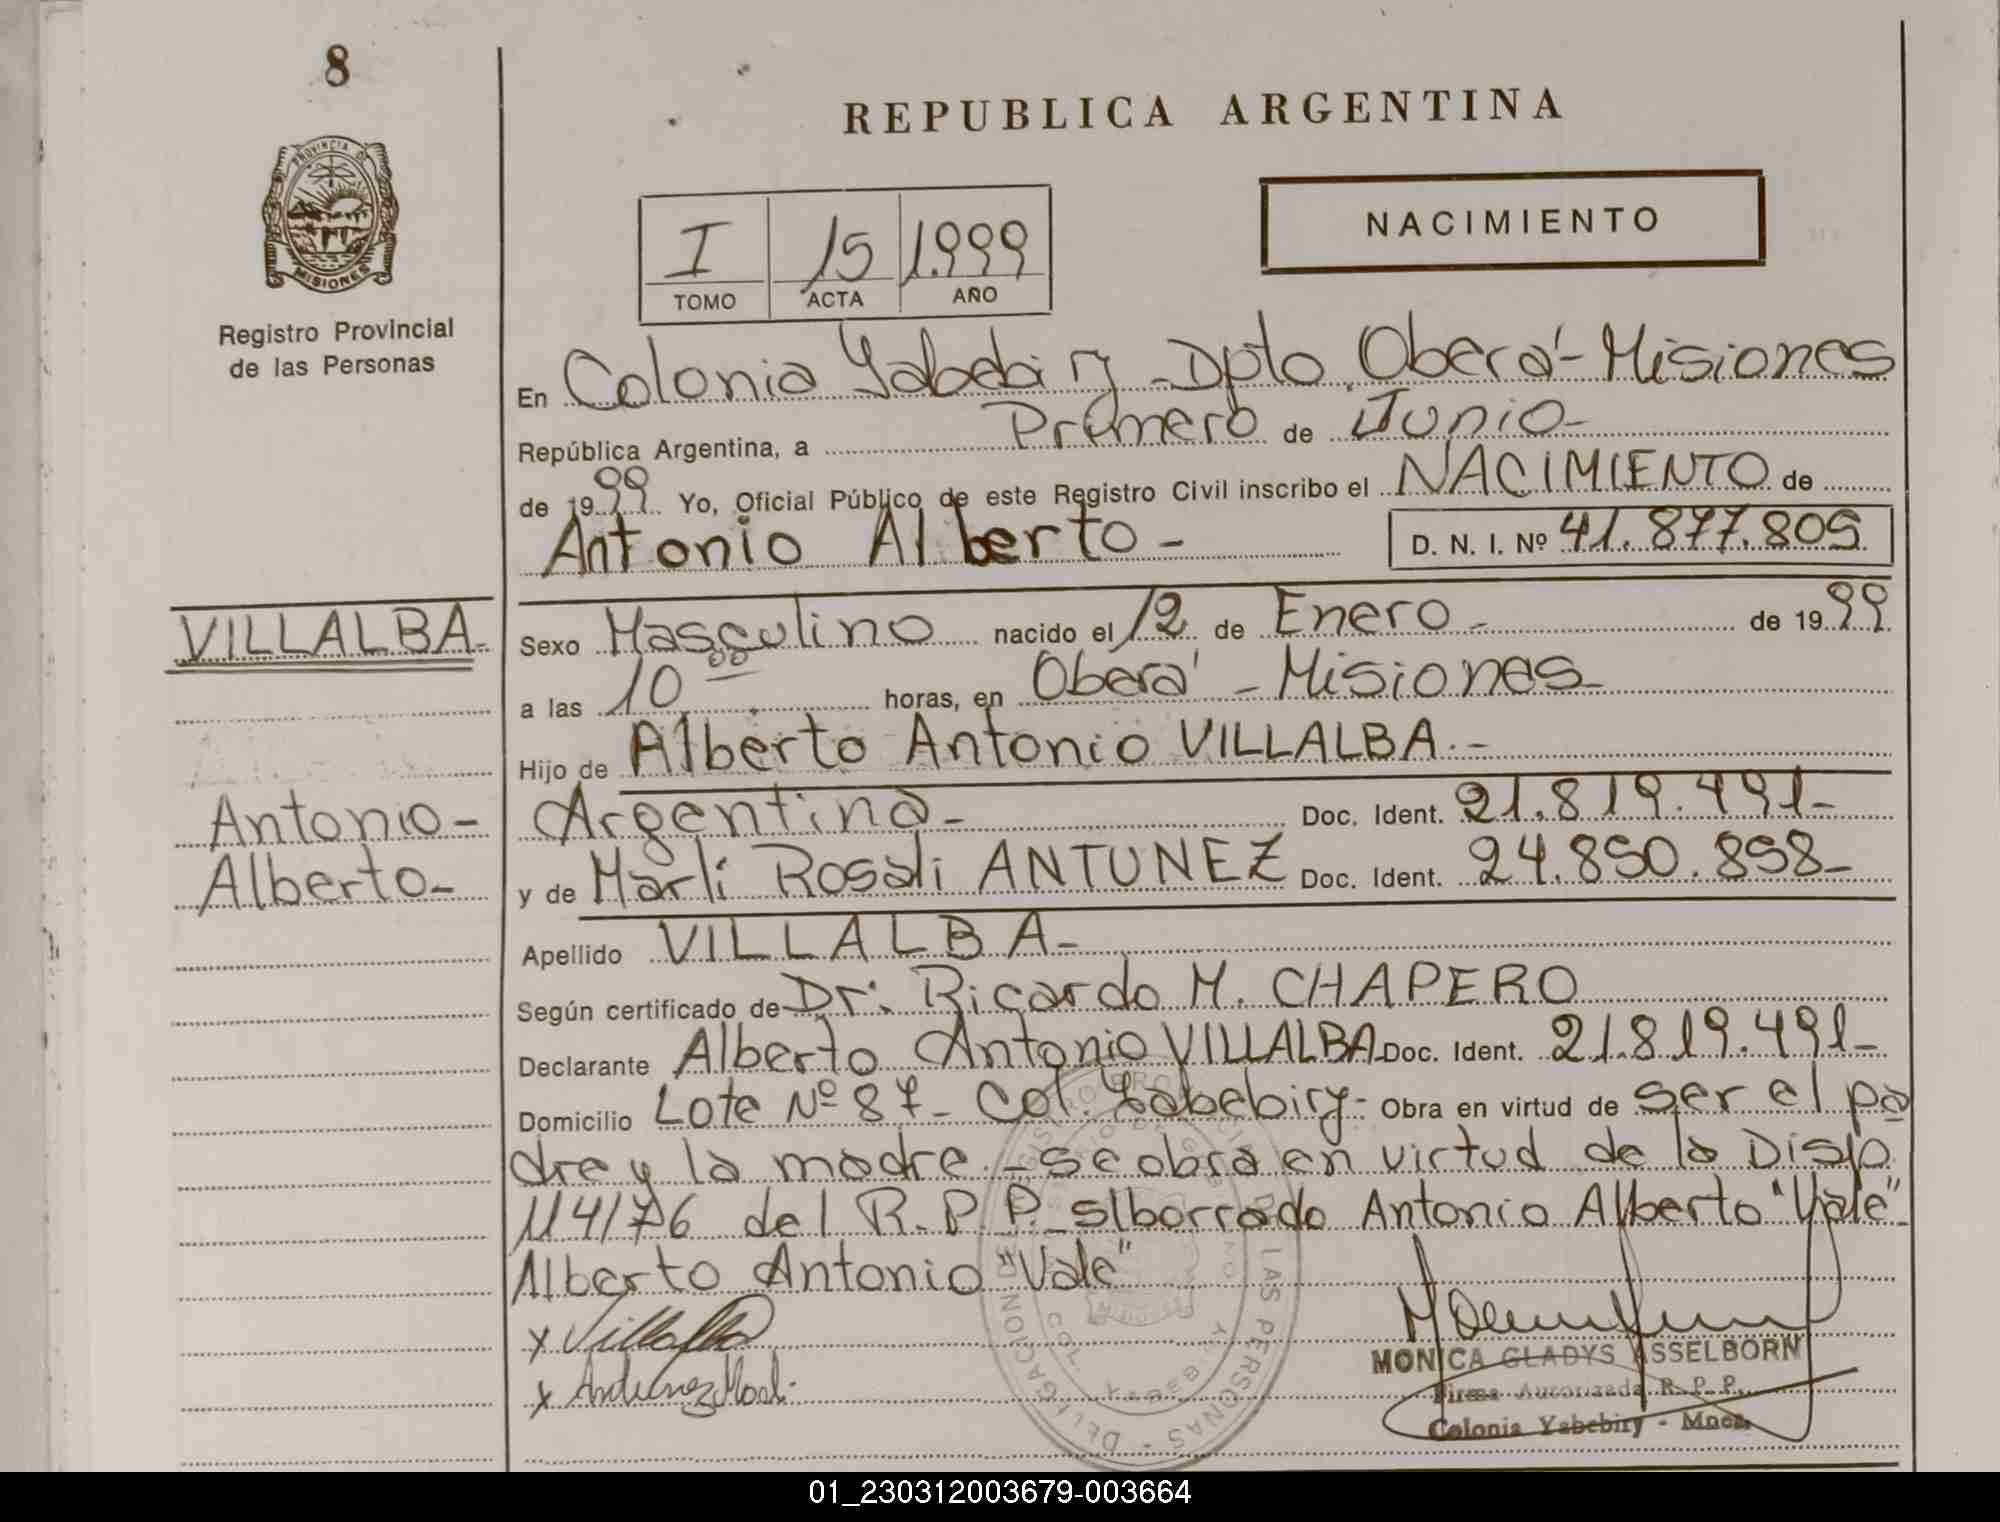 8
REPUBLICA ARGENTINA
PROVINCIA DE
MISIONES
Registro Provincial
de las Personas
I 15 1.999
TOMO ACTA AÑO
NACIMIENTO
En Colonia Yabebiry - Dpto Oberá - Misiones
República Argentina, a Primero de Junio -
de 1999 Yo, Oficial Público de este Registro Civil inscribo el NACIMIENTO de
Antonio Alberto - D. N. I. Nº 41.877.805
VILLALBA -
Sexo Masculino nacido el 12 de Enero - de 1999
a las 10 00 horas, en Oberá - Misiones -
Hijo de Alberto Antonio VILLALBA. -
Antonio -
Argentina - Doc. Ident. 21.819.491 -
Alberto -
y de Marli Rosali ANTUNEZ Doc. Ident. 24.850.858 -
Apellido VILLALBA -
Según certificado de Dr. Ricardo M. CHAPERO
Declarante Alberto Antonio VILLALBA - Doc. Ident. 21.819.491 -
Domicilio Lote Nº 87 - Col. Yabebiry - Obra en virtud de ser el pa
dre y la madre. - se obra en virtud de la Disp.
114/76 del R.P.P. s/borrado Antonio Alberto "Vale" -
Alberto Antonio "Vale"
x Villalba
x Antunez Marli
MONICA GLADYS ASSELBORN
Firma Autorizada R. P. P.
Colonia Yabebiry - Mnes.
01_230312003679-003664